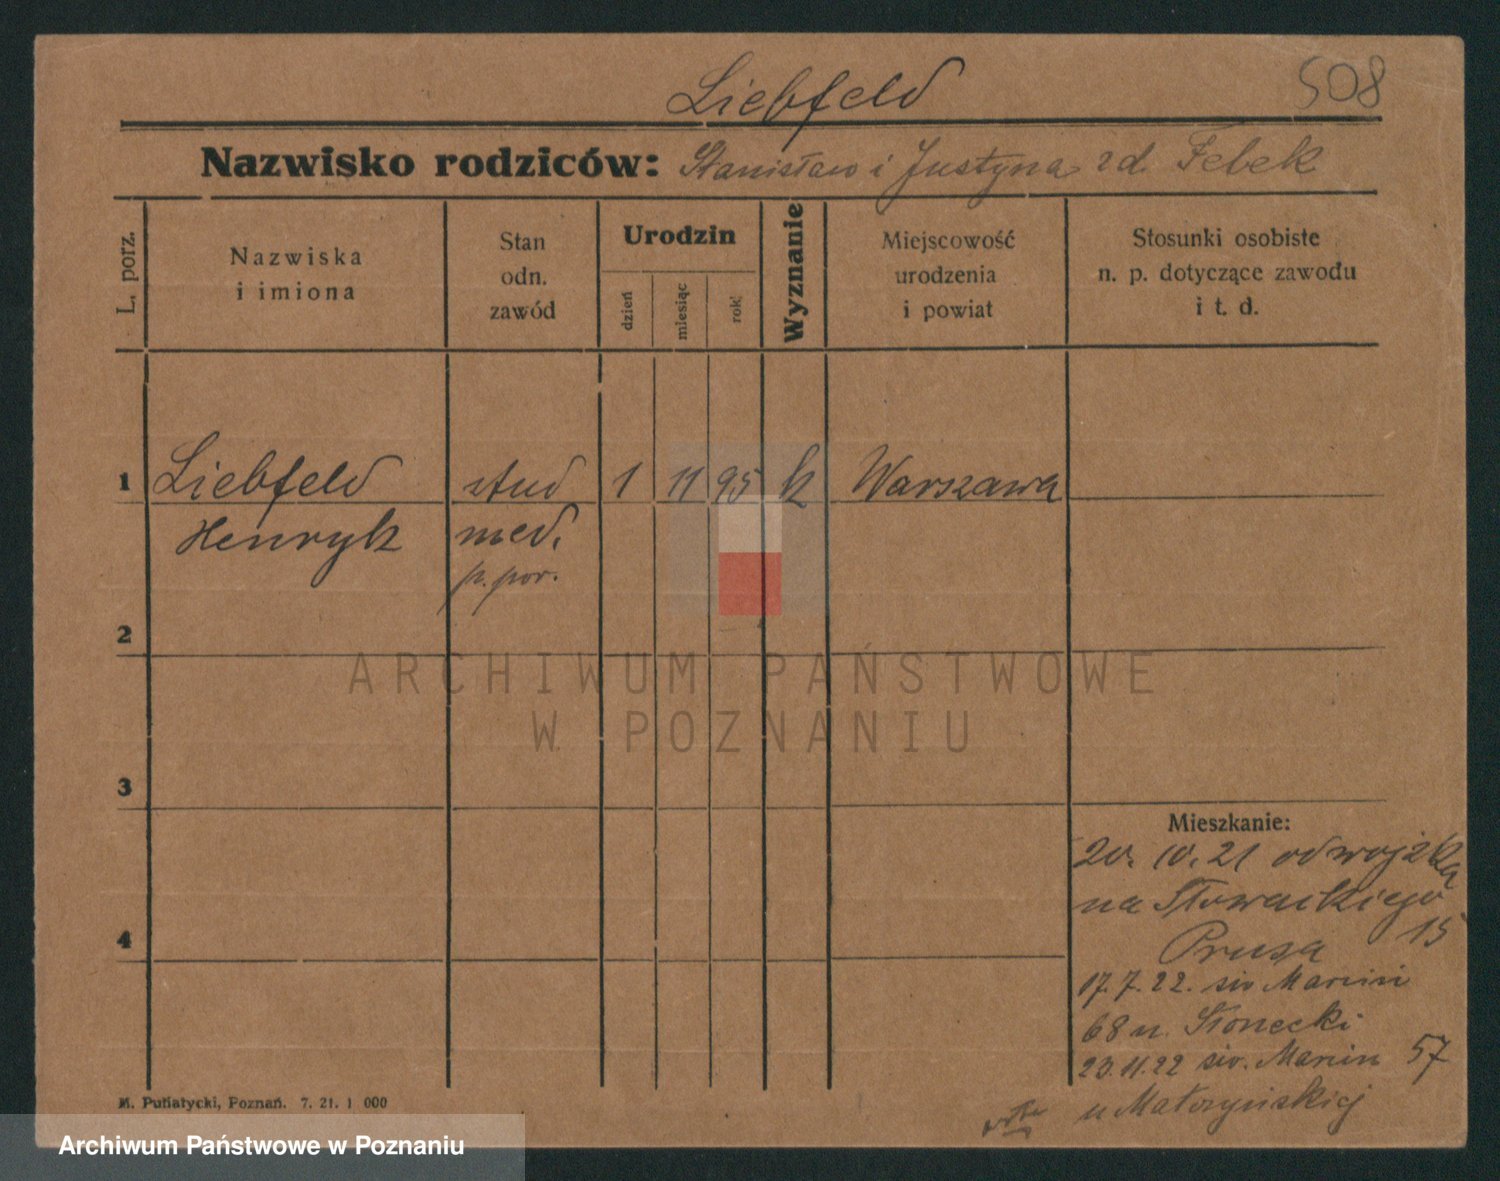 Liebfeld
508
Nazwisko rodziców: Stanisław i Justyna zd. Febek
L. porz.
Nazwiska
i imiona
Stan
odn.
zawód
Urodzin
dzień
miesiąc
rok
Wyznanie
Miejscowość
urodzenia
i powiat
Stosunki osobiste
n. p. dotyczące zawodu
i t. d.
1 Liebfeld stud 1 11 95 k Warszawa
Henryk med.
p. por.
2
ARCHIWUM PAŃSTWOWE
W POZNANIU
3
Mieszkanie:
20. 10. 21 od wojska
na Słowackiego
15
4
Prusa
17. 7. 22. św Marcin
68 u. Słonecki
23. 11. 22 św. Marcin 57
u Małozyńskiej
M. Putiatycki, Poznań. 7. 21. 1 000
Archiwum Państwowe w Poznaniu